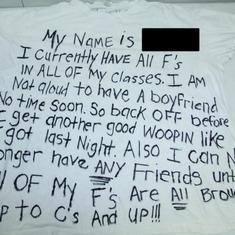 My Name is
I Currently Have All F's
IN ALL OF my classes. I AM
Not aloud to have A boyfriend
No time Soon. So back OFF before
I get another good Woopin like
I got last Night. Also I can N
onger have ANY Friends unt
ll OF My F's Are All Brou
up to C's And UP!!!